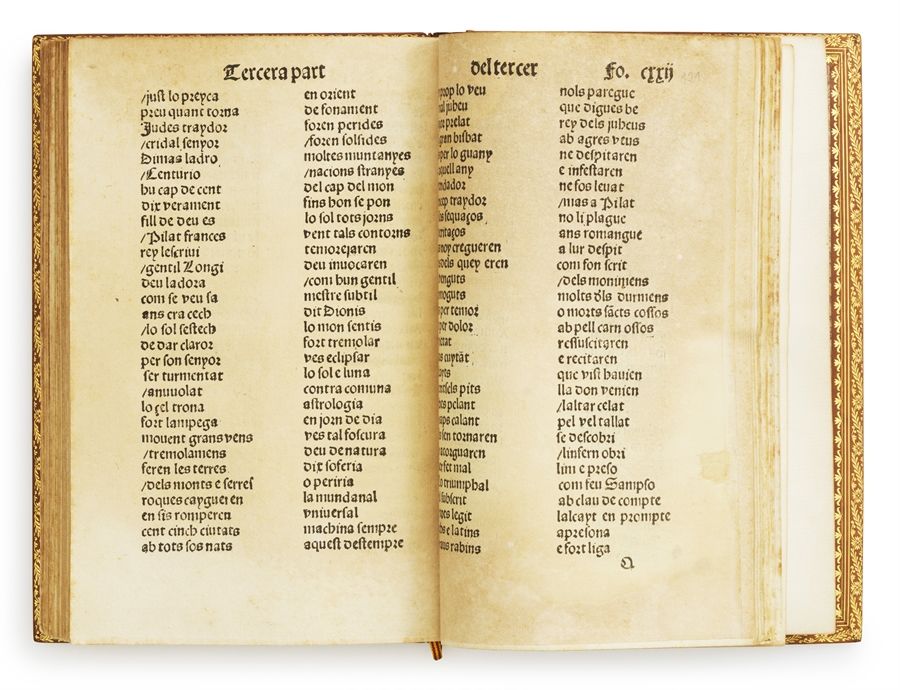 Tercera part
/just lo preyca
preu quant torna
Judes traydor
/cridal senyor
Dimas ladro
/Centurio
hu cap de cent
dix verament
fill de deu es
/Pilat frances
rey lescriui
/gentil Longi
deu ladora
com se veu sa
ans era cech
/lo sol sestech
de dar claror
per son senyor
ser turmentat
/anuuolat
lo çel trona
fort lampega
mouent grans vens
/tremolamens
feren les terres
/dels monts e serres
roques caygueren
en sis romperen
cent cinch ciutats
ab tots sos nats
en orient
de fonament
foren perides
/foren folsides
moltes muntanyes
/nacions stranyes
del cap del mon
fins hon se pon
lo sol tots jorns
vent tals contorns
temorejaren
deu inuocaren
/com hun gentil
mestre subtil
dit Dionis
lo mon sentis
fort tremolar
ves eclipsar
lo sol e luna
contra comuna
astrologia
en jorn de dia
ves tal foscura
deu de natura
dix soferia
o periria
la mundanal
vniuersal
machina sempre
aquest destempre
del tercer
Fo. cxxij
lo veu
prelat
bisbat
per lo guany
traydor
creguereren
quey eren
per temor
dolor
pits
pelant
calant
tornaren
mal
triumphal
legit
e latins
rabins
nols paregue
que digues be
rey dels juheus
ab agres veus
ne despitaren
e infestaren
ne fos leuat
/mas a Pilat
no li plague
ans romangue
a lur despit
com fon scrit
/dels monimens
molts dls durmens
o morts sācts cossos
ab pell carn ossos
ressuscitaren
e recitaren
que vist hauien
lla don venien
/laltar celat
pel vel tallat
se descobri
/linfern obri
lim e preso
com feu Sampso
ab clau de compte
lalcayt en prompte
apresona
e fort liga
Q